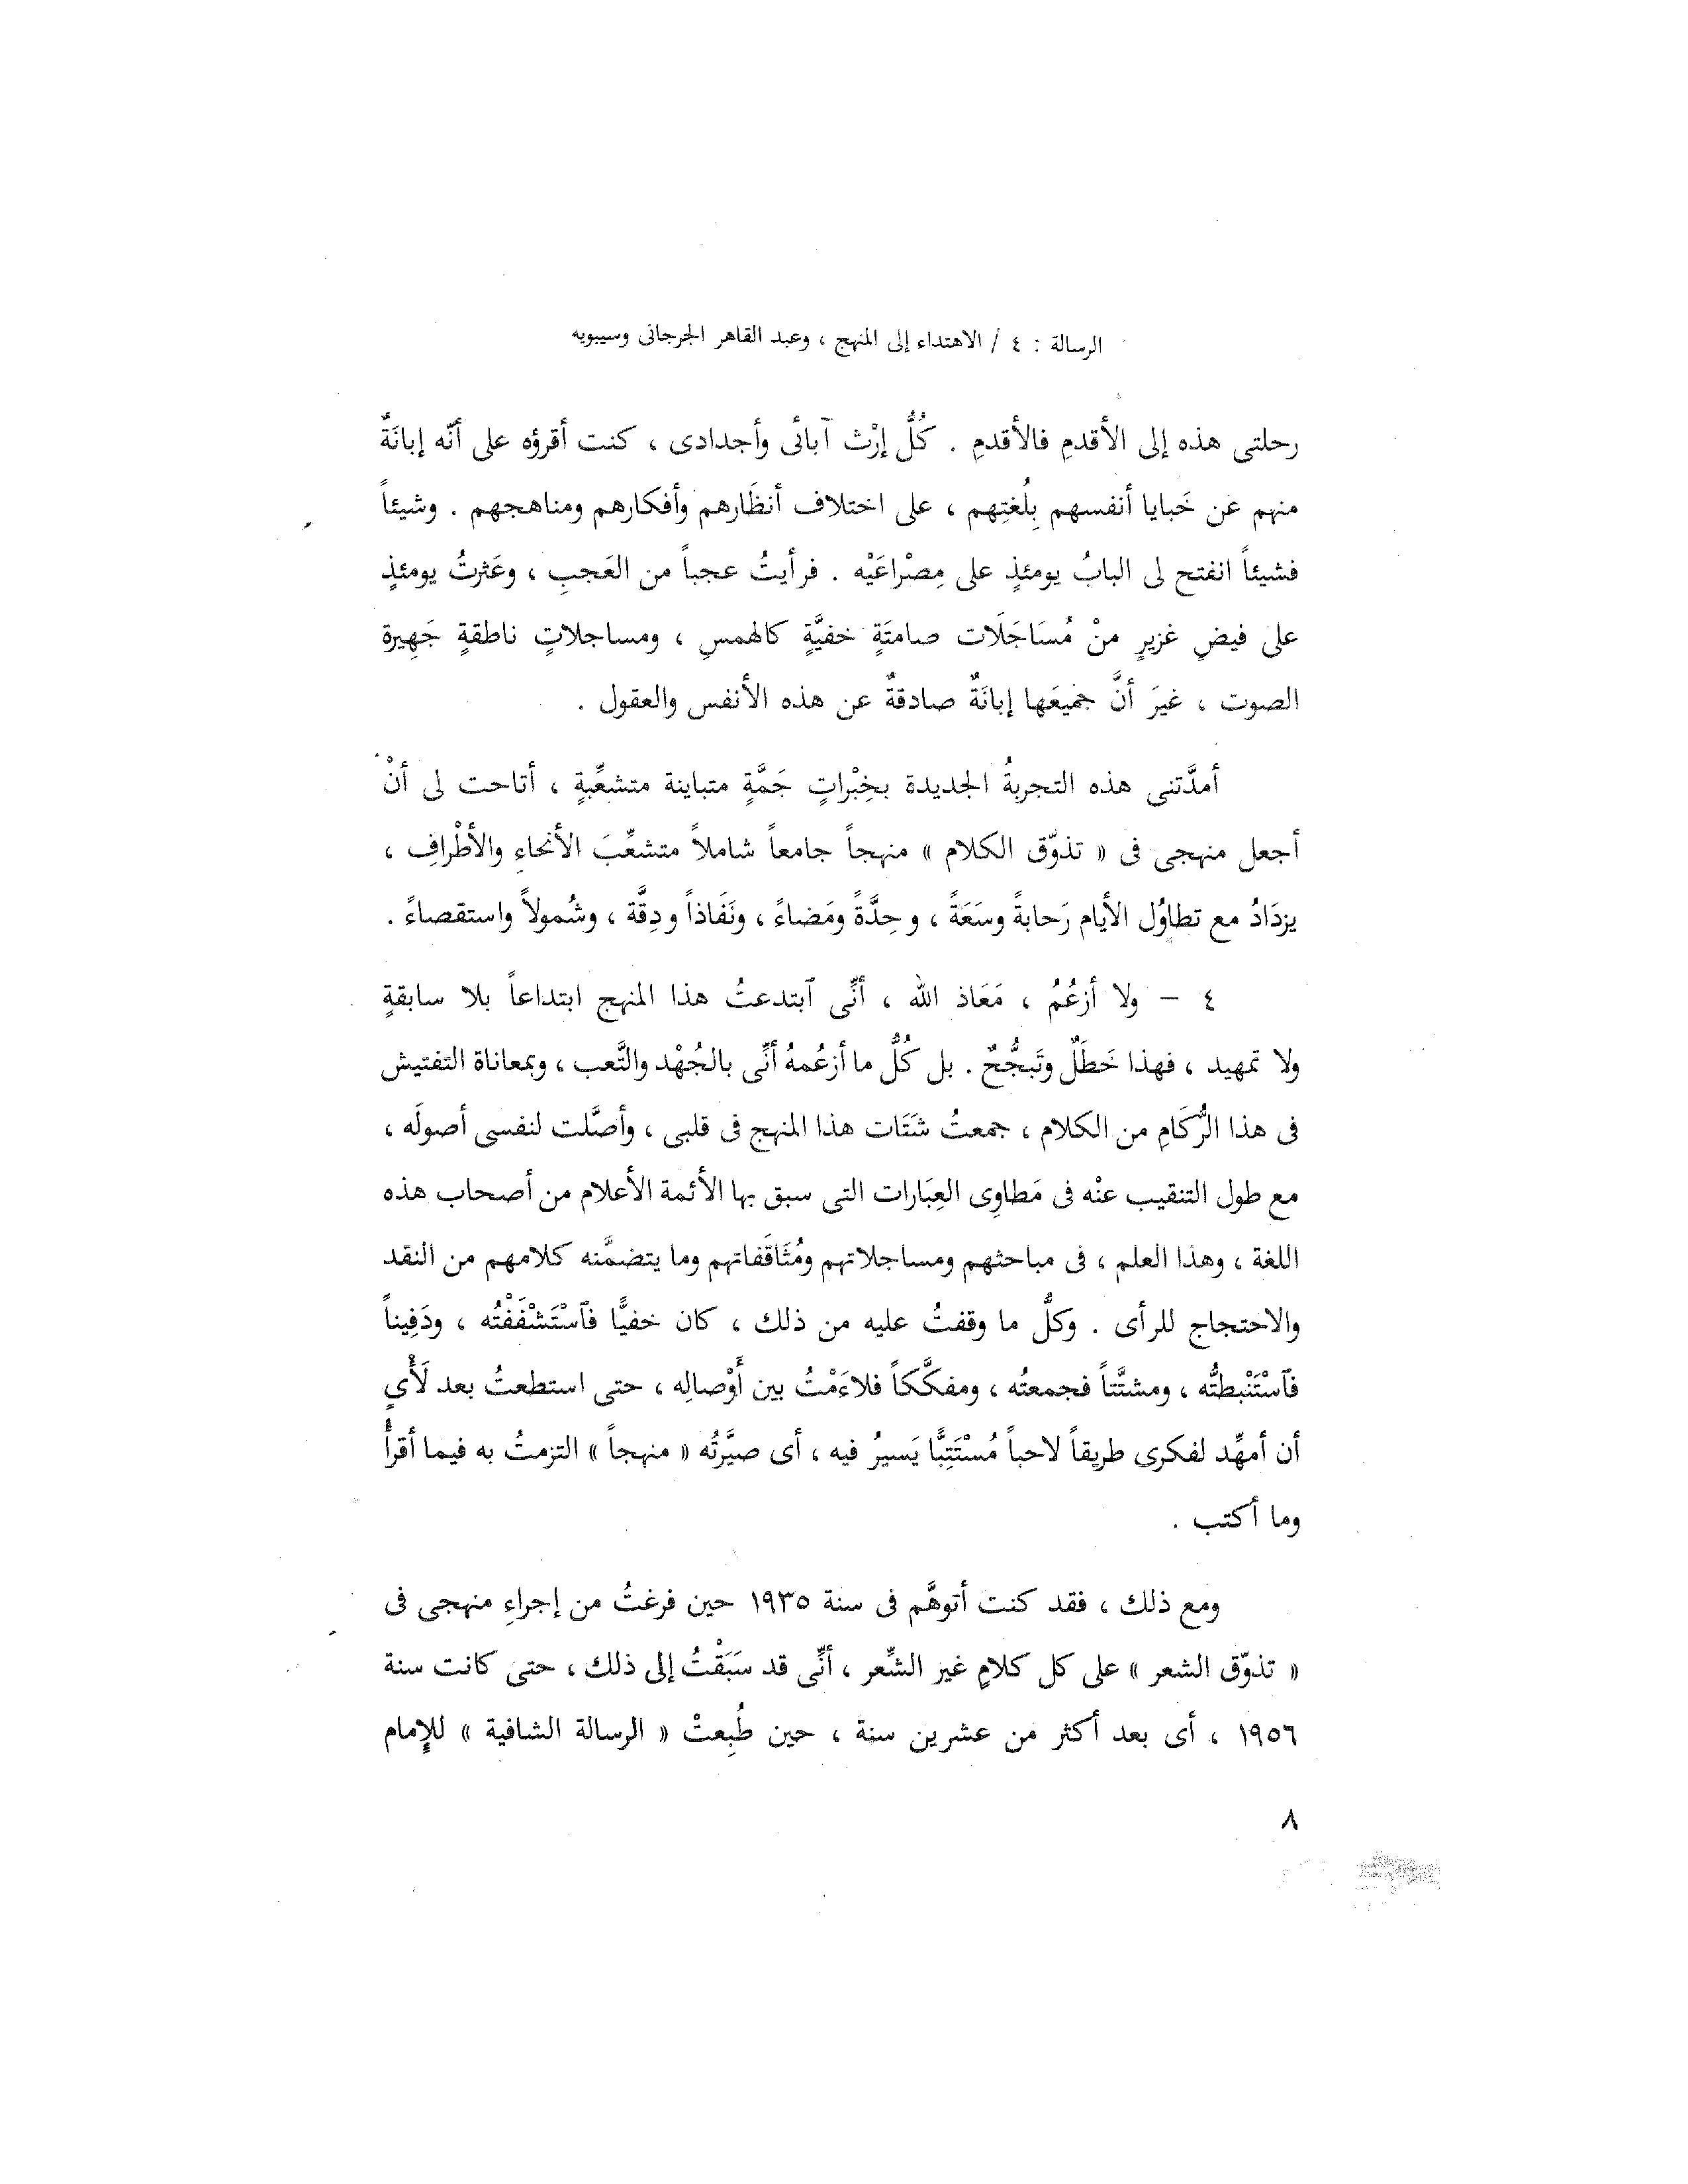 الرسالة : ٤ / الاهتداء إلى المنهج ، وعبد القاهر الجرجانى وسيبويه
رحلتى هذه إلى الأقدمِ فالأقدمِ . كُلُّ إرْث آبائى وأجدادى ، كنت أقرؤه على أنّه إبانَةٌ
منهم عن خَبايا أنفسهم بِلُغتِهم ، على اختلاف أنظَارهم وأفكارهم ومناهجهم . وشيئاً
فشيئاً انفتح لى البابُ يومئذٍ على مِصْراعَيْه . فرأيتُ عجباً من العَجبِ ، وعَثرتُ يومئذٍ
على فيضٍ غزيرٍ منْ مُسَاجَلَات صامتَةٍ خفيَّةٍ كالهمسِ ، ومساجلاتٍ ناطقةٍ جَهِيرة
الصوت ، غيرَ أنَّ جميعَها إبانَةٌ صادقةٌ عن هذه الأنفس والعقول .
أمدَّتنى هذه التجربةُ الجديدة بخِبْراتٍ جَمَّةٍ متباينة متشعِّبةٍ ، أتاحت لى أنْ
أجعل منهجى فى « تذوّق الكلام » منهجاً جامعاً شاملاً متشعِّبَ الأنحاءِ والأطْرافِ ،
يزدَادُ مع تطاوُل الأيام رَحابةً وسَعَةً ، وحِدَّةً ومَضاءً ، ونَفَاذاً ودِقَّة ، وشُمولاً واستقصاءً .
٤ – ولا أزعُمُ ، مَعَاذ الله ، أنِّى ٱبتدعتُ هذا المنهج ابتداعاً بلا سابقةٍ
ولا تمهيد ، فهذا خَطَلٌ وتَبجُّحٌ . بل كُلُّ ما أزعُمهُ أنِّى بالجُهْد والتَّعب ، وبمعاناة التفتيش
فى هذا الرُّكَامِ من الكلام ، جمعتُ شَتَات هذا المنهج فى قلبى ، وأصَّلت لنفسى أصولَه ،
مع طول التنقيب عنْه فى مَطاوِى العِبَارات التى سبق بها الأئمة الأعلام من أصحاب هذه
اللغة ، وهذا العلم ، فى مباحثهم ومساجلاتهم ومُثَاقَفاتهم وما يتضمَّنه كلامهم من النقد
والاحتجاج للرأى . وكلُّ ما وقفتُ عليه من ذلك ، كان خفيًّا فٱسْتَشْفَفْتُه ، ودَفِيناً
فٱسْتَنْبطتُّه ، ومشتَّتاً فجمعتُه ، ومفكَّكاً فلاءَمْتُ بين أَوْصالِه ، حتى استطعتُ بعد لَأْىٍ
أن أمهِّد لفكرى طريقاً لاحباً مُسْتَتِبًّا يَسيرُ فيه ، أى صيَّرتُه « منهجاً » التزمتُ به فيما أقرأُ
وما أكتب .
ومع ذلك ، فقد كنت أتوهَّم فى سنة ١٩٣٥ حين فرغتُ من إجراءِ منهجى فى
« تذوّق الشعر » على كل كلامٍ غير الشِّعر ، أنِّى قد سَبَقْتُ إلى ذلك ، حتى كانت سنة
١٩٥٦ ، أى بعد أكثر من عشرين سنة ، حين طُبِعتْ « الرسالة الشافية » للإمام
٨